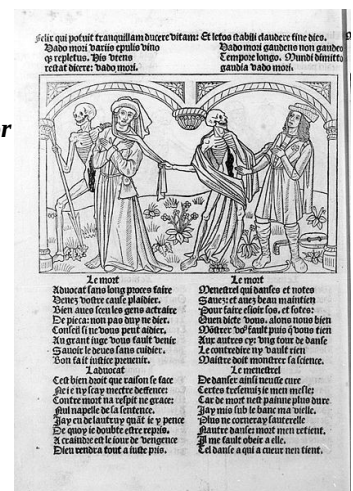 Felix qui potuit tranquillam ducere vitam: Et letos stabili claudere fine dies.
Vado mori variis epulis vino
q3 repletus. His utens
restat dicere: vado mori.
Vado mori gaudens non gaudeo
Tempore longo. Mundi dimitto
gaudia vado mori.
or
Le mort
Advocat sans long proces faire
Venez vostre cause plaidier.
Bien aues sceu les gens actraire
De pieca: non pas duy ne dier.
Conseil si ne vous peut aidier.
Au grant iuge vous fault venir
Sauoir le deues sans cuidier.
Bon fait iustice prevenir.
Laduocat
Cest bien droit que raison se face
Ne ie ny scay mectre deffence:
Contre mort na respit ne grace:
Nul napelle de sa sentence.
Jay eu de lautruy quāt ie y pence
De quoy ie doubte estre repris.
A craindre est le iour de vengence
Dieu rendra tout a iuste pris.
Le mort
Menestrel qui danses et notes
Sauez: et auez beau maintien
Pour faire esioir sos. et sotes:
Quen dicte vous. alons nous bien
Mōstrer voꝰ fault puis q̄ vous tien
Aux autres cy: ung tour de danse
Le contredire ny vault rien
Maistre doit monstrer sa science.
Le menestrel
De danser ainsi neusse cure
Certes tresenuiz ie men mesle:
Car de mort nest painne plus dure
Jay mis sub le banc ma vielle.
Plus ne corneray sauterelle
Nautre danse: mort men retient.
Il me fault obeir a elle.
Tel danse a qui a cueur nen tient.